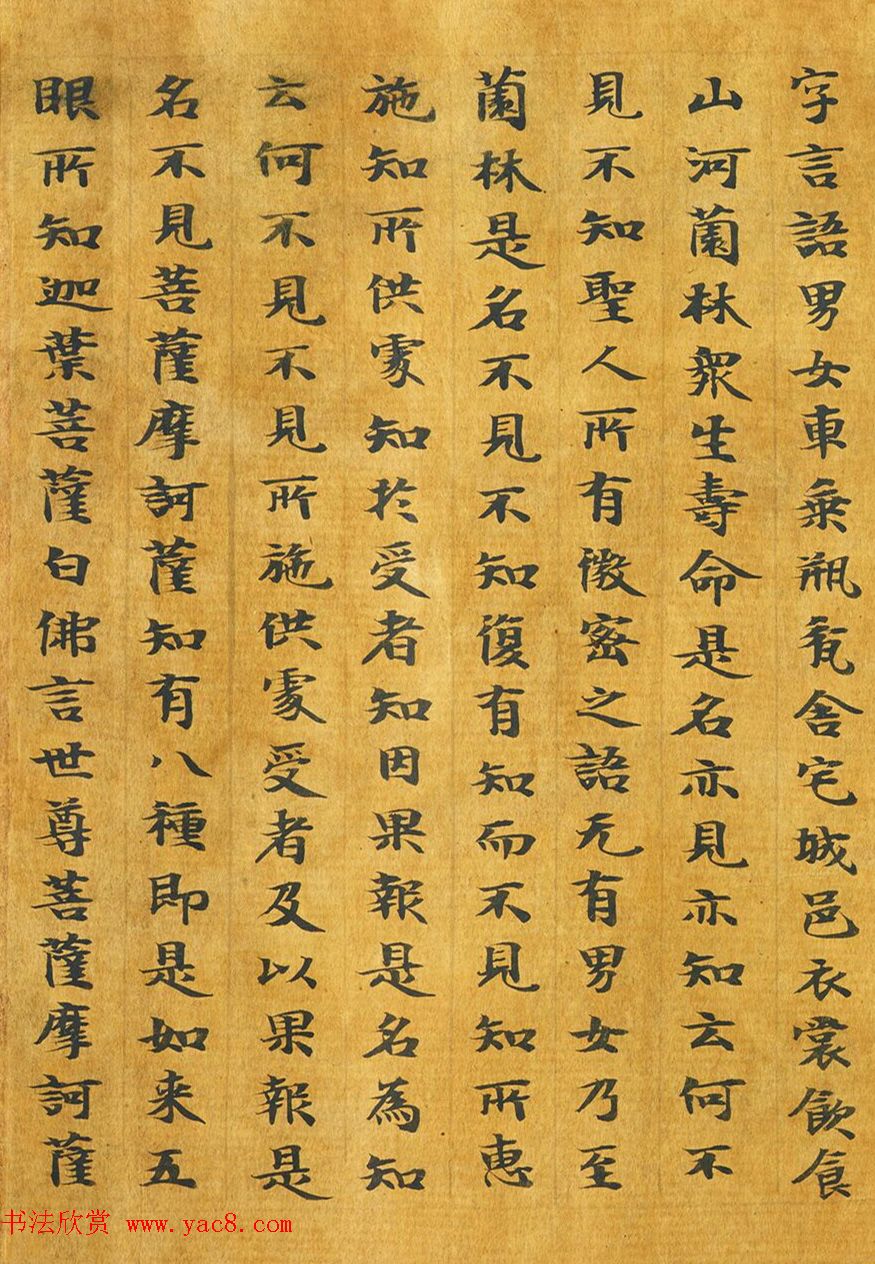 字言語男女車乗瓶瓫舍宅城邑衣裳飲食
山河薗林衆生壽命是名亦見亦知云何不
見不知聖人所有微密之語无有男女乃至
薗林是名不見不知復有知而不見知所惠
施知所供處知於受者知因果報是名為知
云何不見不見所施供處受者及以果報是
名不見菩薩摩訶薩知有八種即是如来五
眼所知迦葉菩薩白佛言世尊菩薩摩訶薩
书法欣赏 www.yac8.com